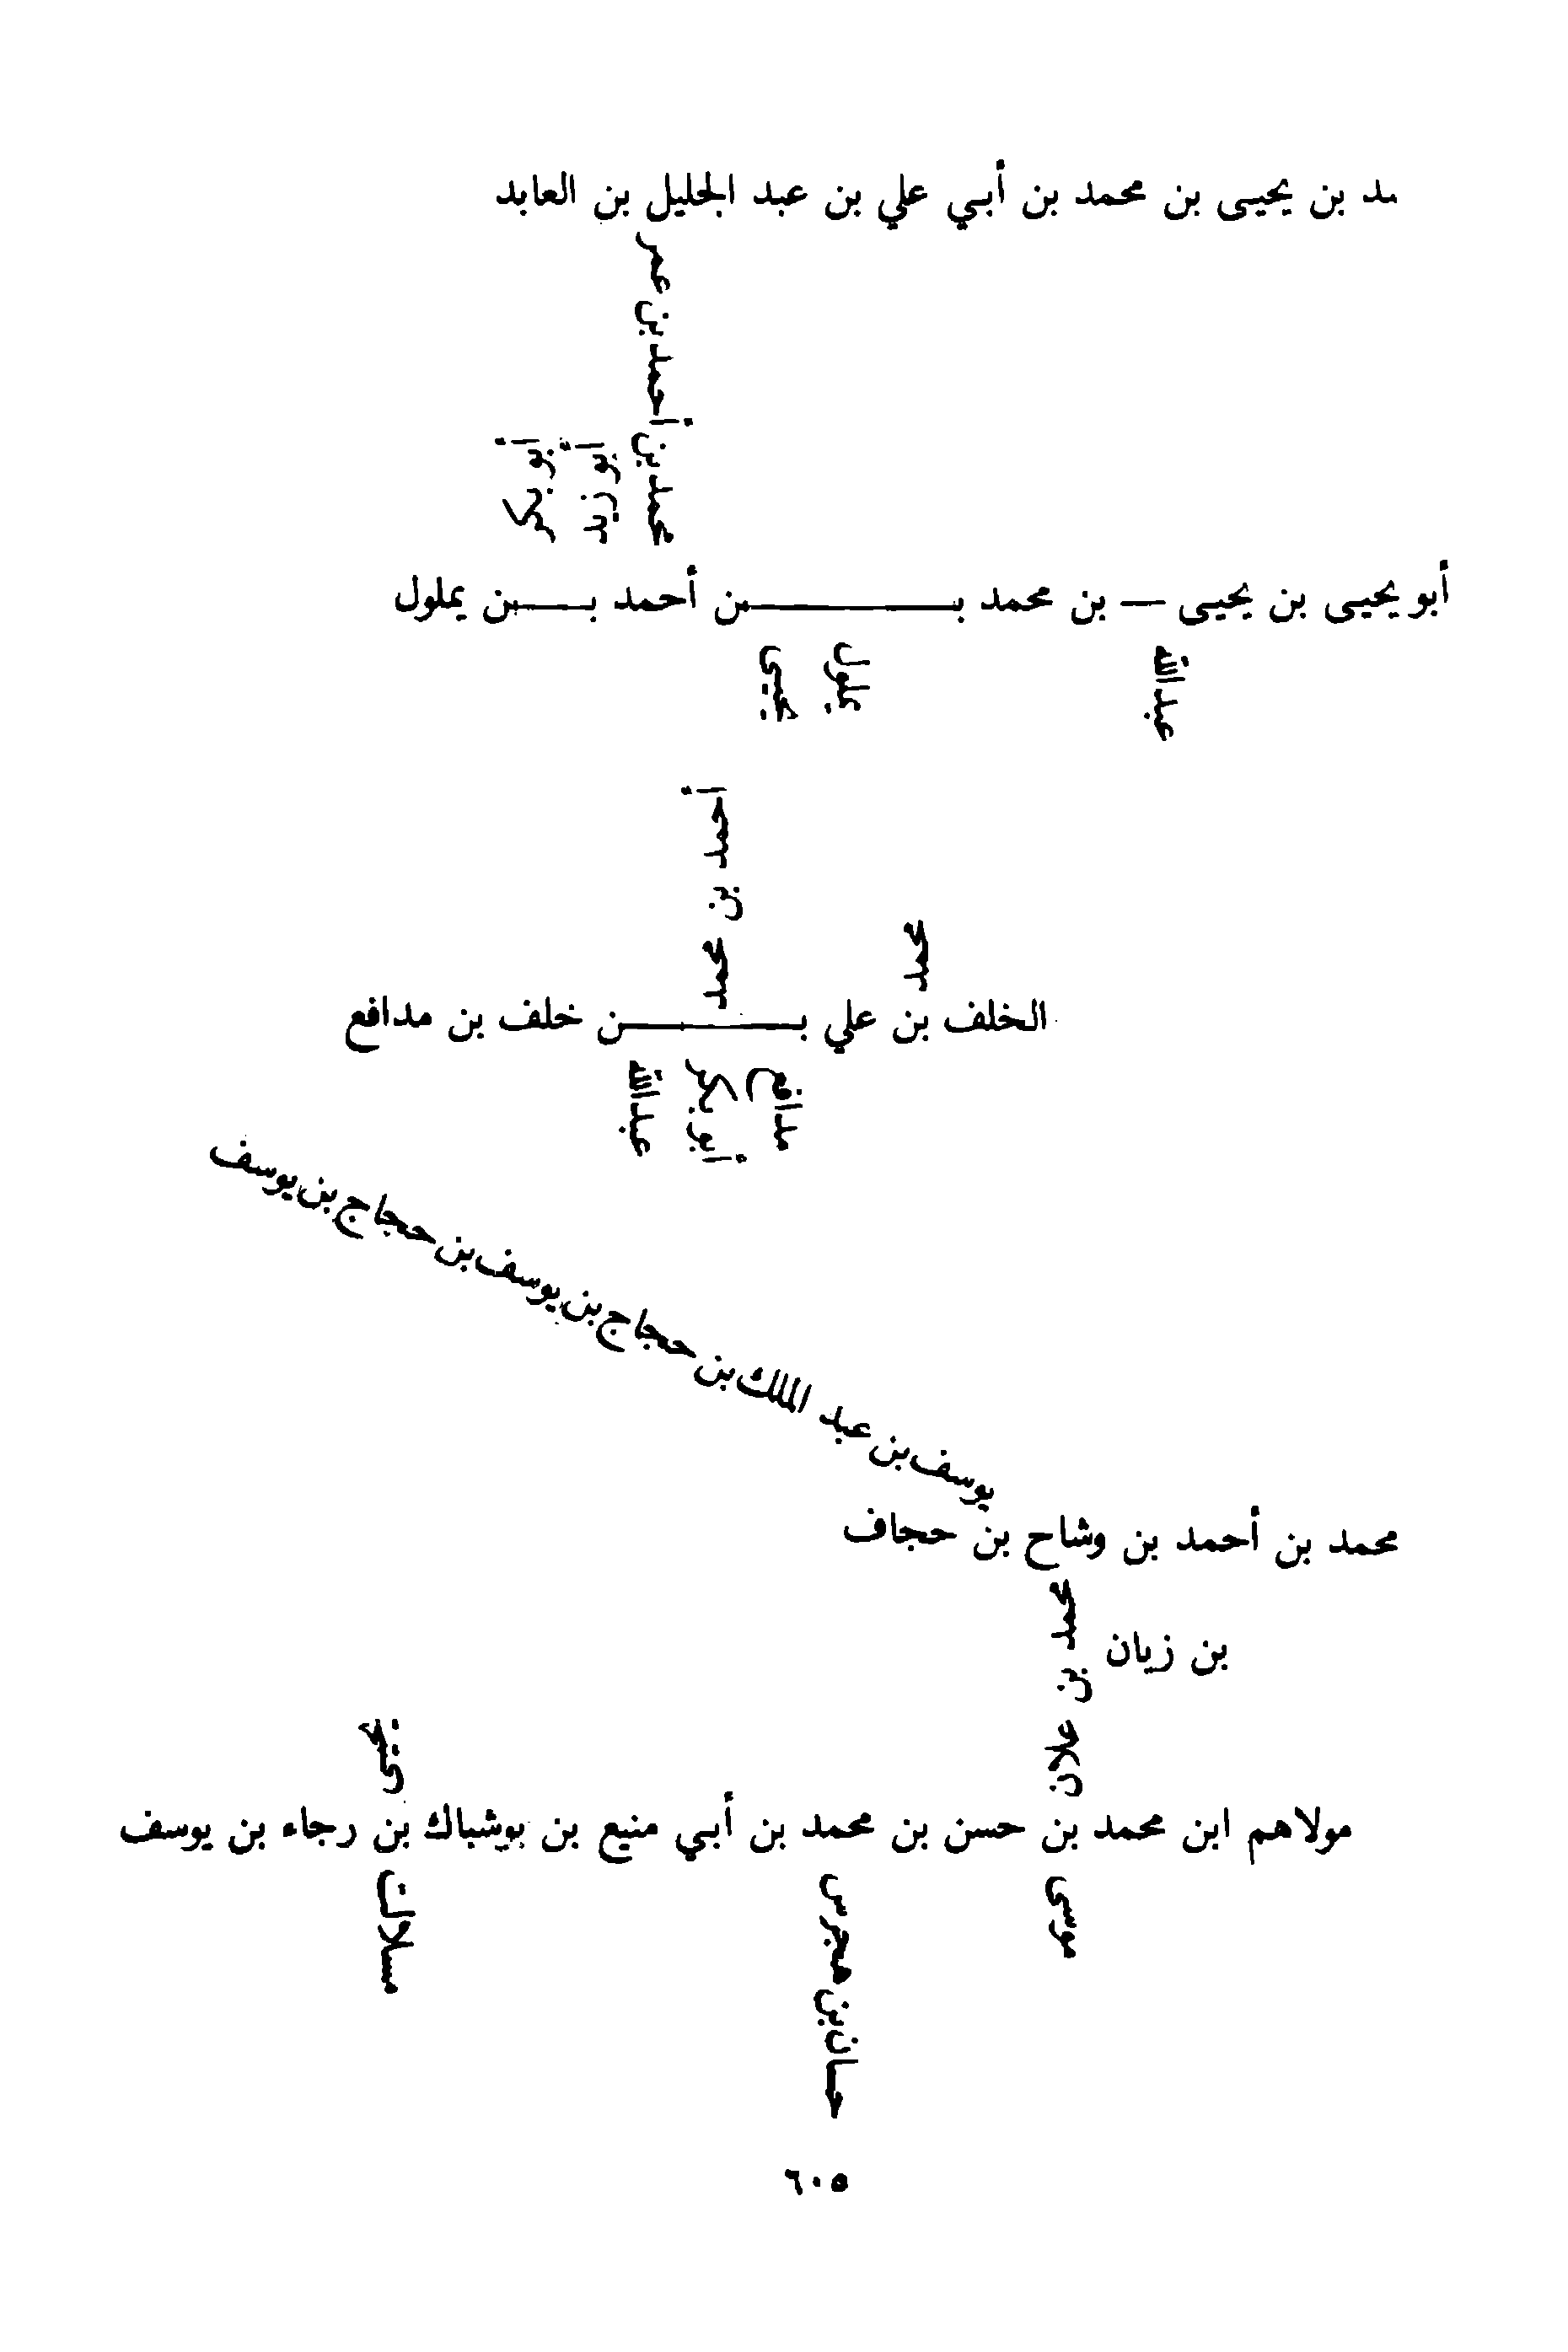 ـد بن يحيى بن محمد بن أبي علي بن عبد الجليل بن العابد
محمد بن أحمد بن عمر
أبو بكر
أبو يحيى بن يحيى — بن محمد بــــــــــن أحمد بـــــن يملول
عبدالله
يملول
يحيى
أحمد بن محمد
محمد
الخلف بن علي بــــــــــن خلف بن مدافع
مدافع
أبو بكر
عبدالله
يوسف بن عبد الملك بن حجاج بن يوسف بن حجاج بن يوسف
محمد بن أحمد بن وشاح بن حجاف
محمد بن علان
بن زيان
مولاهم ابن محمد بن حسن بن محمد بن أبي منيع بن بوشباك بن رجاء بن يوسف
موسى
حسان بن هجرس
مسلالت
٦٠٥